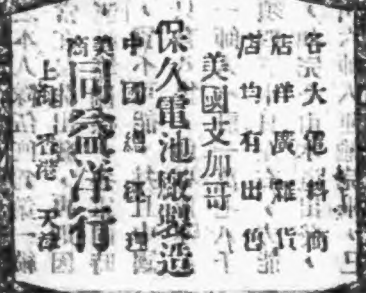 各大電料商
店洋廣雜貨
店均有出售
美國支加哥
保久電池廠製造
中國總經理
美商
同益洋行
上海 香港 天津